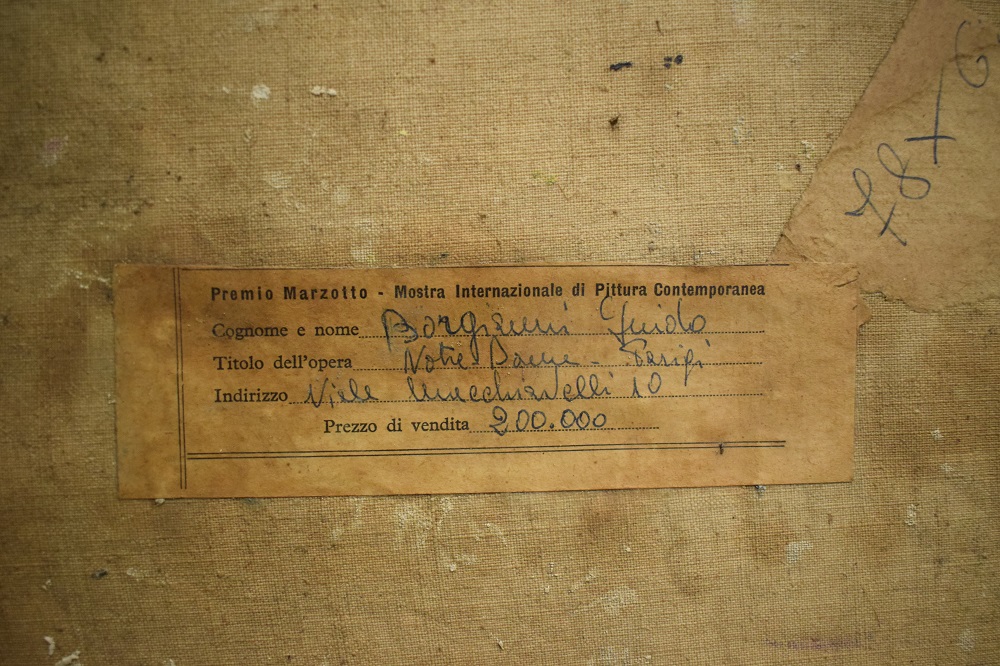 Premio Marzotto - Mostra Internazionale di Pittura Contemporanea
Cognome e nome Borgianni Guido
Titolo dell'opera Notre Dame - Parigi
Indirizzo Viale Machiavelli 10
Prezzo di vendita 200.000